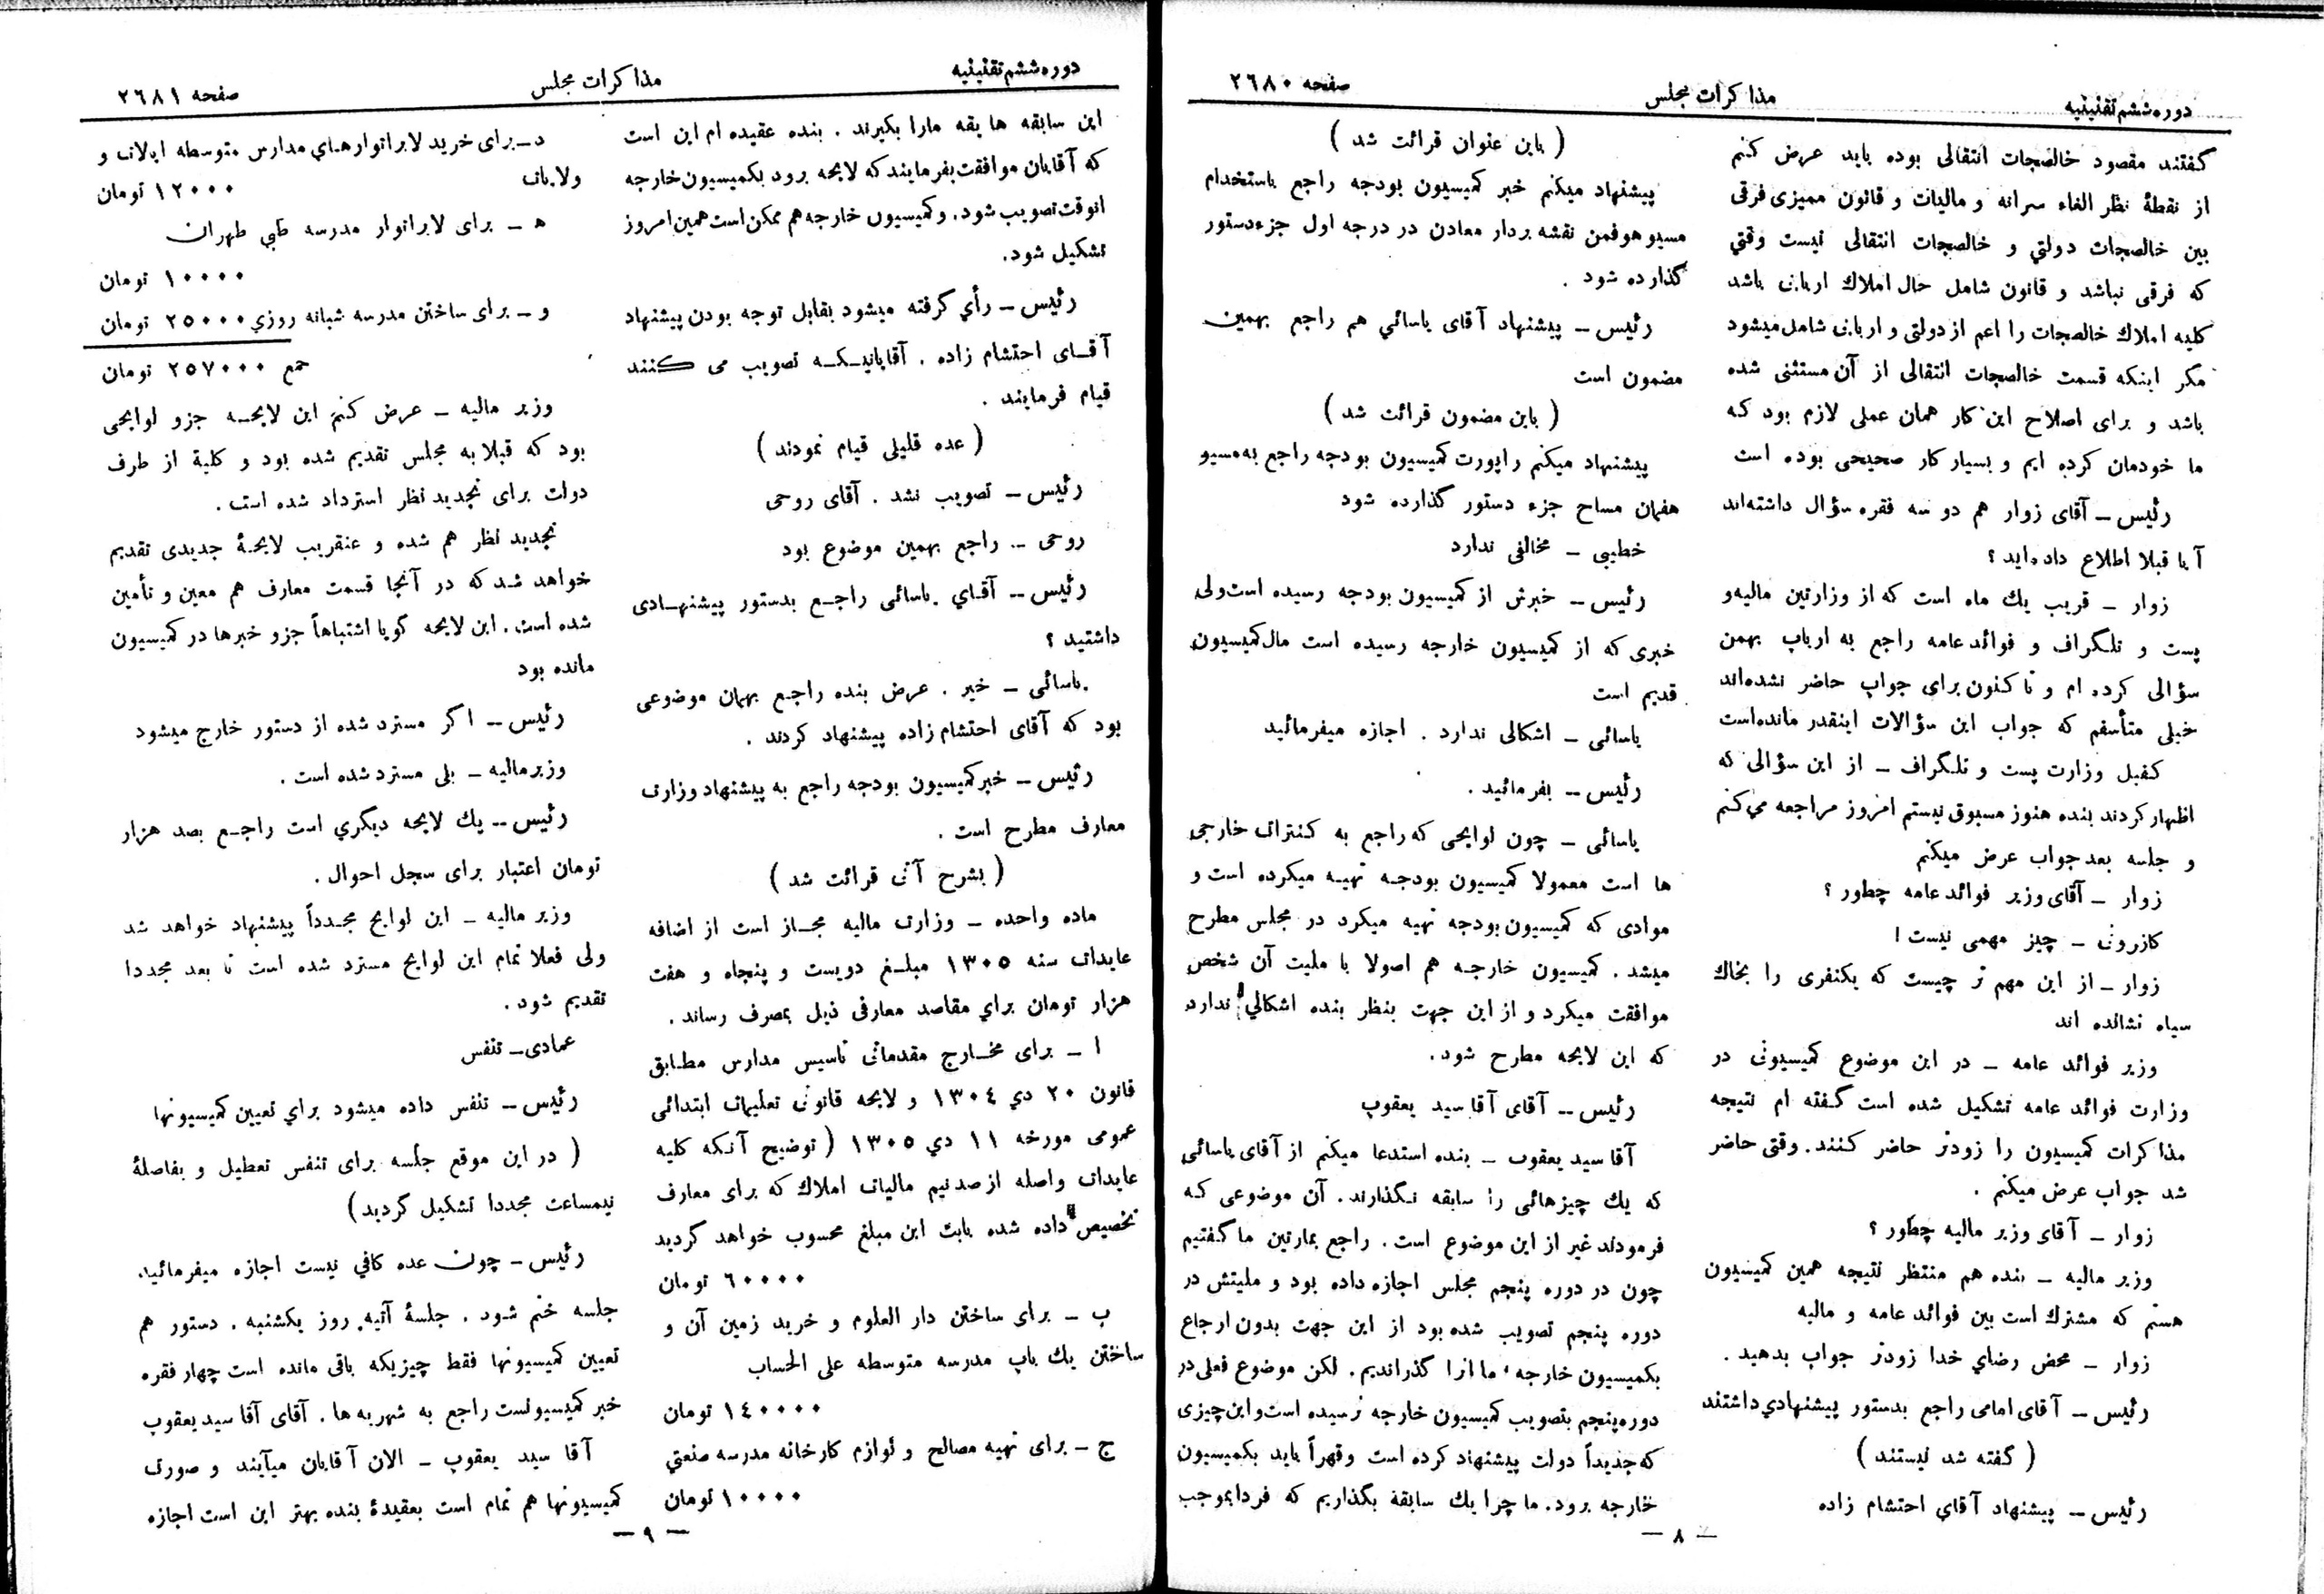 دوره ششم تقنینیه
مذاکرات مجلس
صفحه ۲۶۸۰
گفتند مقصود خالصجات انتقالی بوده باید عرض کنم
از نقطهٔ نظر الغاء سرانه و مالیات و قانون ممیزی فرقی
بین خالصجات دولتي و خالصجات انتقالی نیست وقتي
که فرقی نباشد و قانون شامل حال املاك اربابی باشد
کلیه املاك خالصجات را اعم از دولتی و اربابی شامل میشود
مگر اینکه قسمت خالصجات انتقالی از آن مستثنی شده
باشد و برای اصلاح این کار همان عملی لازم بود که
ما خودمان کرده ایم و بسیار کار صحیحی بوده است
رئیس ــ آقای زوار هم دو سه فقره سؤال داشته‌اند
آیا قبلا اطلاع داده‌اید ؟
زوار ــ قریب یك ماه است که از وزارتین مالیه و
پست و تلگراف و فوائد عامه راجع به ارباب بهمن
سؤالی کرده ام و تا کنون برای جواب حاضر نشده‌اند
خیلی متأسفم که جواب این سؤالات اینقدر مانده‌است
کفیل وزارت پست و تلگراف ــ از این سؤالی که
اظهار کردند بنده هنوز مسبوق نیستم امروز مراجعه مي کنم
و جلسه بعد جواب عرض میکنم
زوار ــ آقای وزیر فوائد عامه چطور ؟
کازرونی ــ چیز مهمی نیست !
زوار ــ از این مهم تر چیست که یکنفری را بخاك
سیاه نشانده اند
وزیر فوائد عامه ــ در این موضوع کمیسیونی در
وزارت فوائد عامه تشکیل شده است گفته ام نتیجه
مذاکرات کمیسیون را زودتر حاضر کنند. وقتی حاضر
شد جواب عرض میکنم .
زوار ــ آقای وزیر مالیه چطور ؟
وزیر مالیه ــ بنده هم منتظر نتیجه همین کمیسیون
هستم که مشترك است بین فوائد عامه و مالیه
زوار ــ محض رضاي خدا زودتر جواب بدهید .
رئیس ــ آقای امامی راجع بدستور پیشنهادي داشتند
( گفته شد نیستند )
رئیس ــ پیشنهاد آقاي احتشام زاده
( باین عنوان قرائت شد )
پیشنهاد میکنم خبر کمیسیون بودجه راجع باستخدام
مسیو هوفمن نقشه بردار معادن در درجه اول جزء دستور
گذارده شود .
رئیس ــ پیشنهاد آقای یاسائي هم راجع بهمین
مضمون است
( باین مضمون قرائت شد )
پیشنهاد میکنم راپورت کمیسیون بودجه راجع به مسیو
هفمان مساح جزء دستور گذارده شود
خطیبی ــ مخالفی ندارد
رئیس ــ خبرش از کمیسیون بودجه رسیده است ولی
خبری که از کمیسیون خارجه رسیده است مال کمیسیون
قدیم است
یاسائی ــ اشکالی ندارد . اجازه میفرمائید
رئیس ــ بفرمائید .
یاسائی ــ چون لوایحی که راجع به کنترات خارجی
ها است معمولا کمیسیون بودجه تهیه میکرده است و
موادی که کمیسیون بودجه تهیه میکرد در مجلس مطرح
میشد . کمیسیون خارجه هم اصولا با ملیت آن شخص
موافقت میکرد و از این جهت بنظر بنده اشکالي ندارد
که این لایحه مطرح شود.
رئیس ــ آقای آقا سید یعقوب
آقا سید یعقوب ــ بنده استدعا میکنم از آقای یاسائی
که یك چیزهائی را سابقه نگذارند. آن موضوعی که
فرمودند غیر از این موضوع است. راجع بمارتین ما گفتیم
چون در دوره پنجم مجلس اجازه داده بود و ملیتش در
دوره پنجم تصویب شده بود از این جهت بدون ارجاع
بکمیسیون خارجه، ما انرا گذراندیم. لکن موضوع فعلی در
دوره پنجم بتصویب کمیسیون خارجه نرسیده است و این چیزی
که جدیداً دولت پیشنهاد کرده است و قهراً باید بکمیسیون
خارجه برود. ما چرا یك سابقه بگذاریم که فردا بموجب
ــ ۸ ــ
دوره ششم تقنینیه
مذاکرات مجلس
صفحه ۲۶۸۱
این سابقه ها یقه مارا بگیرند . بنده عقیده ام این است
که آقایان موافقت بفرمایند که لایحه برود بکمیسیون خارجه
انوقت تصویب شود. و کمیسیون خارجه هم ممکن است همین امروز
تشکیل شود.
رئیس ــ رأي گرفته میشود بقابل توجه بودن پیشنهاد
آقای احتشام زاده . آقایانیکه تصویب می کنند
قیام فرمایند .
( عده قلیلی قیام نمودند )
رئیس ــ تصویب نشد . آقای روحی
روحی ــ راجع بهمین موضوع بود
رئیس ــ آقاي یاسائی راجع بدستور پیشنهادی
داشتید ؟
یاسائی ــ خیر . عرض بنده راجع بهمان موضوعی
بود که آقای احتشام زاده پیشنهاد کردند .
رئیس ــ خبر کمیسیون بودجه راجع به پیشنهاد وزارت
معارف مطرح است .
( بشرح آتی قرائت شد )
ماده واحده ــ وزارت مالیه مجاز است از اضافه
عایدات سنه ۱۳۰۵ مبلغ دویست و پنجاه و هفت
هزار تومان براي مقاصد معارفی ذیل بمصرف رساند .
ا ــ برای مخارج مقدماتی تاسیس مدارس مطابق
قانون ۲۰ دي ۱۳۰۴ و لایحه قانونی تعلیمات ابتدائی
عمومی مورخه ۱۱ دي ۱۳۰۵ ( توضیح آنکه کلیه
عایدات واصله از صد نیم مالیات املاك که برای معارف
تخصیص داده شده بابت این مبلغ محسوب خواهد گردید
۶۰۰۰۰ تومان
ب ــ برای ساختن دار العلوم و خرید زمین آن و
ساختن یك باب مدرسه متوسطه علی الحساب
۱۴۰۰۰۰ تومان
ج ــ برای تهیه مصالح و لوازم کارخانه مدرسه صنعتي
۱۰۰۰۰ تومان
د ــ برای خرید لابراتوارهاي مدارس متوسطه ایالات و
ولایات ۱۲۰۰۰ تومان
ه ــ برای لابراتوار مدرسه طبي طهران
۱۰۰۰۰ تومان
و ــ برای ساختن مدرسه شبانه روزي ۲۵۰۰۰ تومان
جمع ۲۵۷۰۰۰ تومان
وزیر مالیه ــ عرض کنم این لایحه جزو لوایحی
بود که قبلا به مجلس تقدیم شده بود و کلیة از طرف
دولت برای تجدید نظر استرداد شده است .
تجدید نظر هم شده و عنقریب لایحهٔ جدیدی تقدیم
خواهد شد که در آنجا قسمت معارف هم معین و تأمین
شده است . این لایحه گویا اشتباهاً جزو خبرها در کمیسیون
مانده بود
رئیس ــ اگر مسترد شده از دستور خارج میشود
وزیر مالیه ــ بلی مسترد شده است .
رئیس ــ یك لایحه دیگري است راجع بصد هزار
تومان اعتبار برای سجل احوال .
وزیر مالیه ــ این لوایح مجدداً پیشنهاد خواهد شد
ولی فعلا تمام این لوایح مسترد شده است تا بعد مجددا
تقدیم شود .
عمادی ــ تنفس
رئیس ــ تنفس داده میشود براي تعیین کمیسیونها
( در این موقع جلسه برای تنفس تعطیل و بفاصلهٔ
نیمساعت مجددا تشکیل گردید )
رئیس ــ چون عده کافي نیست اجازه میفرمائید
جلسه ختم شود . جلسهٔ آتیه روز یکشنبه . دستور هم
تعیین کمیسیونها فقط چیزیکه باقی مانده است چهار فقره
خبر کمیسیونست راجع به شهریه ها . آقای آقا سید یعقوب
آقا سید یعقوب ــ الان آقایان میآیند و صورت
کمیسیونها هم تمام است بعقیدهٔ بنده بهتر این است اجازه
ــ ۹ ــ